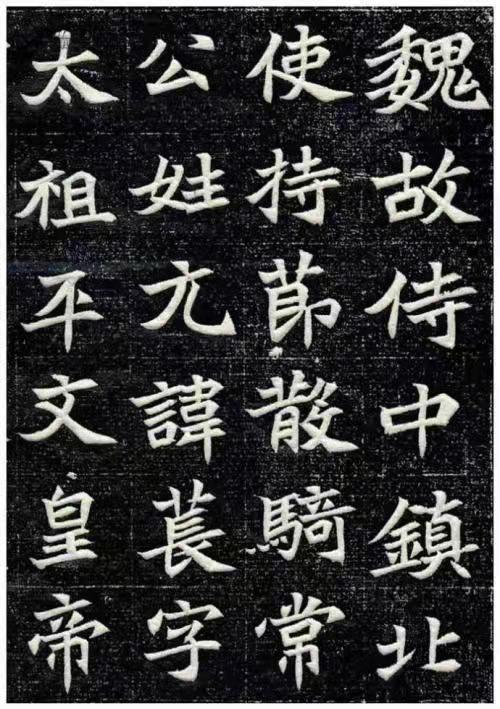 魏故侍中鎮北
使持節散騎常
公姓元諱萇字
太祖平文皇帝